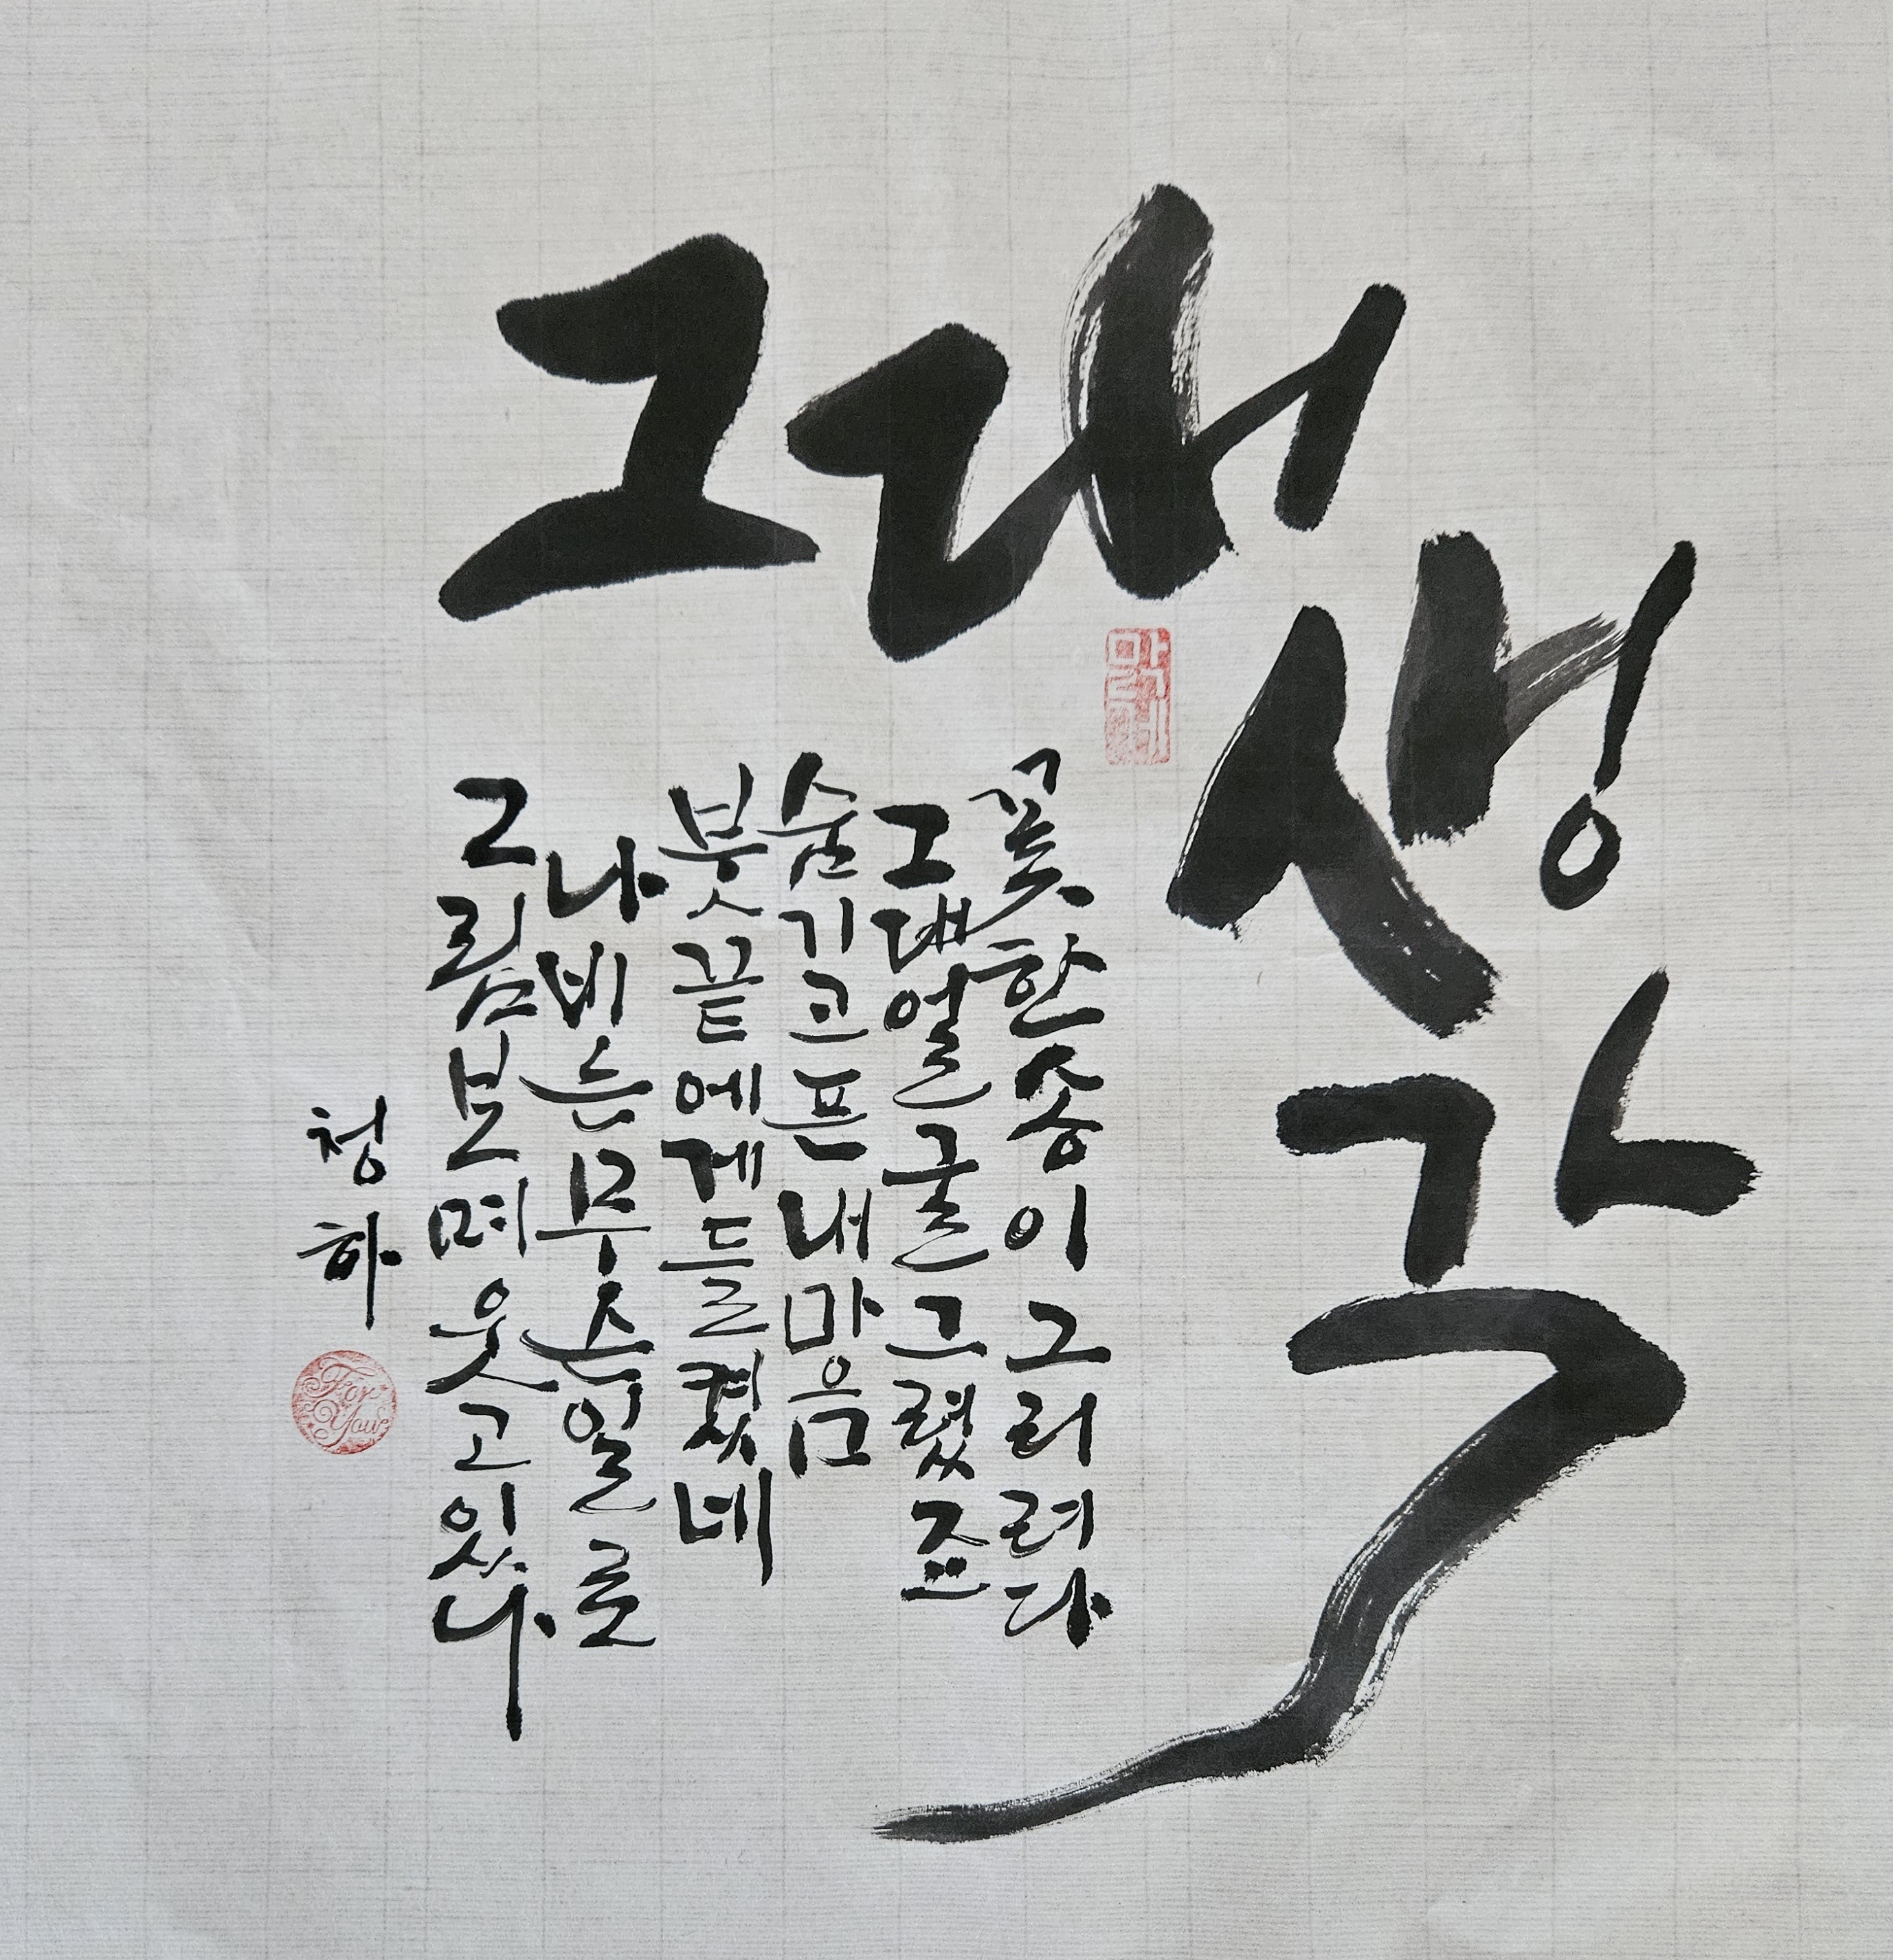 그대
생각
꽃한송이그리려다
그대얼굴그렸죠
숨기고픈내마음
붓끝에게들켰네
나비는무슨일로
그림보며웃고있나
청하
For
You